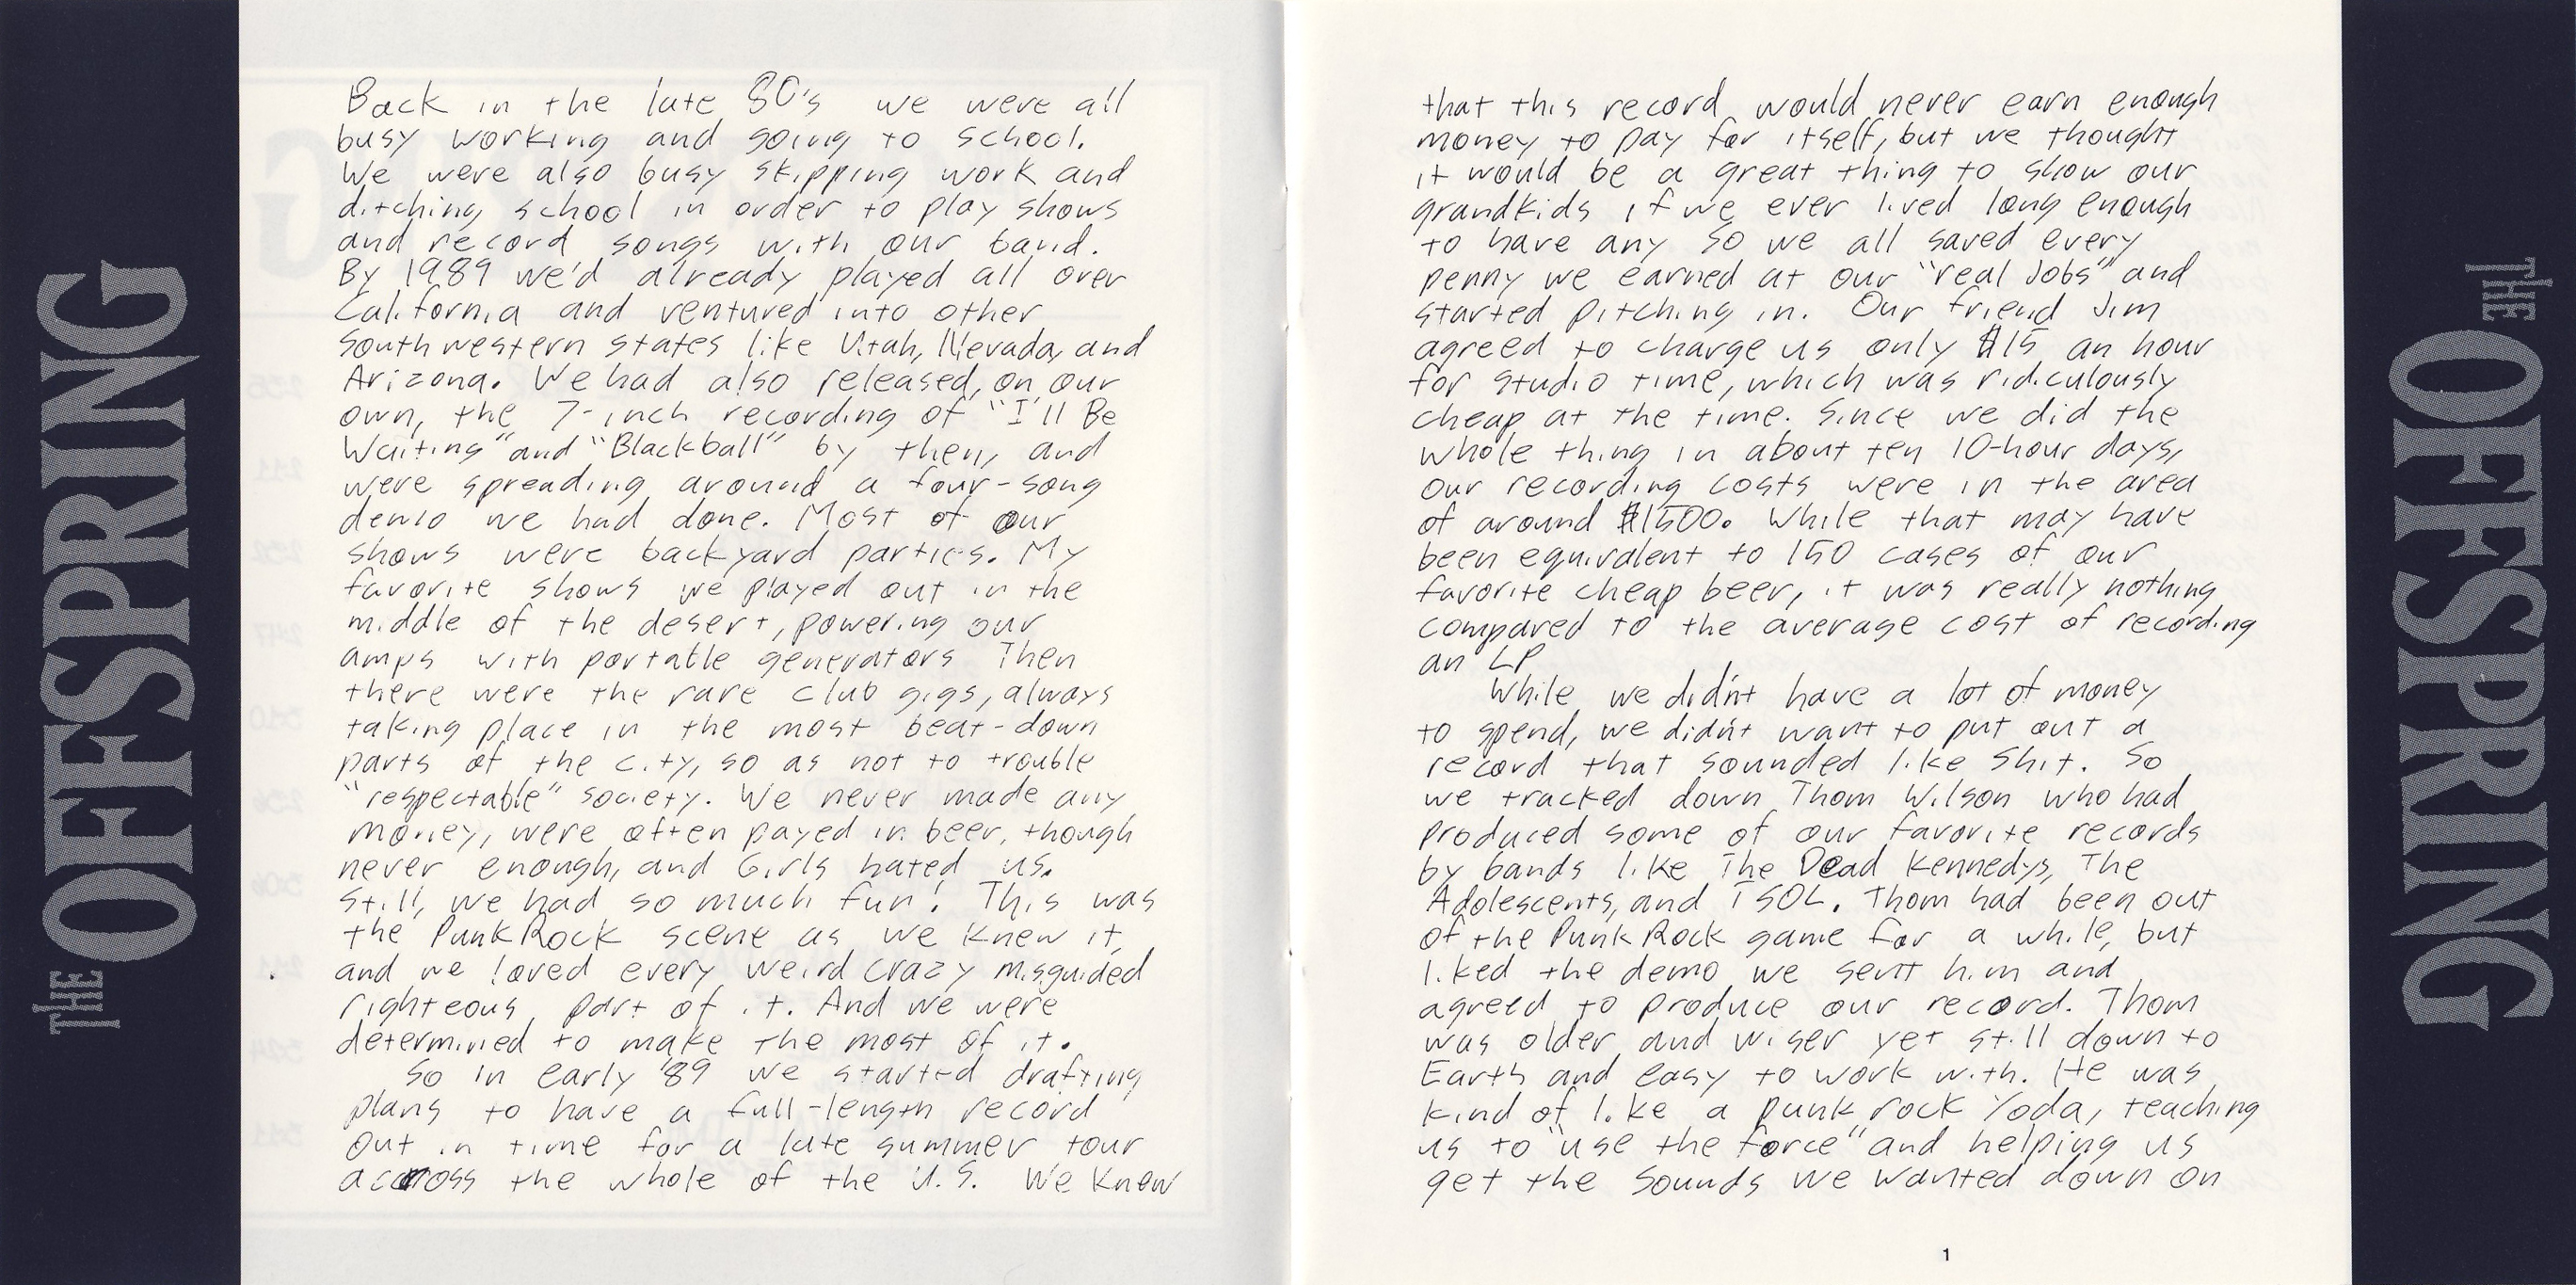 THE OFFSPRING
Back in the late 80's we were all
busy working and going to school.
We were also busy skipping work and
ditching school in order to play shows
and record songs with our band.
By 1989 we'd already played all over
California and ventured into other
Southwestern states like Utah, Nevada, and
Arizona. We had also released, on our
own, the 7-inch recording of "I'll Be
Waiting" and "Blackball" by then, and
were spreading around a four-song
demo we had done. Most of our
shows were backyard parties. My
favorite shows we played out in the
middle of the desert, powering our
amps with portable generators Then
there were the rare club gigs, always
taking place in the most beat-down
parts of the city, so as not to trouble
"respectable" society. We never made any
money, were often payed in beer, though
never enough, and Girls hated us.
Still, we had so much fun! This was
the Punk Rock scene as we knew it,
and we loved every weird crazy misguided
righteous part of it. And we were
determined to make the most of it.
So in early '89 we started drafting
plans to have a full-length record
out in time for a late summer tour
across the whole of the U.S. We knew
that this record would never earn enough
money to pay for itself, but we thought
it would be a great thing to show our
grandkids if we ever lived long enough
to have any so we all saved every
penny we earned at our "real jobs" and
started pitching in. Our friend Jim
agreed to charge us only $15 an hour
for studio time, which was ridiculously
cheap at the time. Since we did the
whole thing in about ten 10-hour days,
our recording costs were in the area
of around $1500. While that may have
been equivalent to 150 cases of our
favorite cheap beer, it was really nothing
compared to the average cost of recording
an LP
While we didn't have a lot of money
to spend, we didn't want to put out a
record that sounded like shit. So
we tracked down Thom Wilson who had
produced some of our favorite records
by bands like The Dead Kennedys, The
Adolescents, and TSOL. Thom had been out
of the Punk Rock game for a while, but
liked the demo we sent him and
agreed to produce our record. Thom
was older and wiser yet still down to
Earth and easy to work with. He was
kind of like a punk rock Yoda, teaching
us to "use the force" and helping us
get the sounds we wanted down on
1
THE OFFSPRING